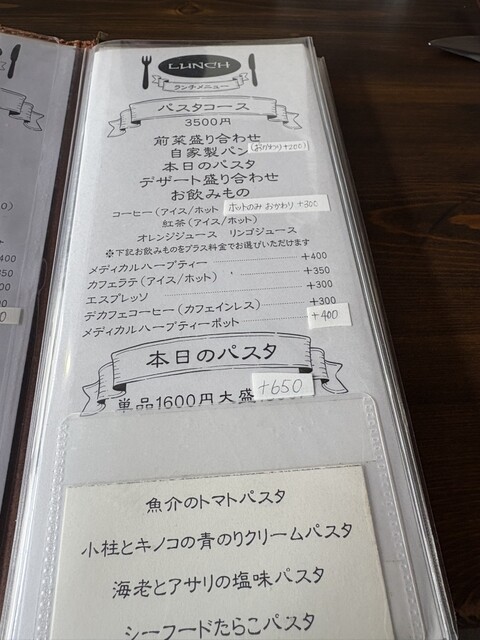 LUNCH
ランチメニュー
パスタコース
3500円
前菜盛り合わせ
自家製パン (おかわり+200)
本日のパスタ
デザート盛り合わせ
お飲みもの
コーヒー(アイス/ホット ホットのみ おかわり +300
紅茶(アイス/ホット)
オレンジジュース リンゴジュース
※下記お飲みものをプラス料金でお選びいただけます
メディカルハーブティー +400
カフェラテ(アイス/ホット) +350
エスプレッソ +300
デカフェコーヒー(カフェインレス) +300
メディカルハーブティーポット +400
本日のパスタ
+650
単品1600円大盛
魚介のトマトパスタ
小柱とキノコの青のりクリームパスタ
海老とアサリの塩味パスタ
シーフードたらこパスタ